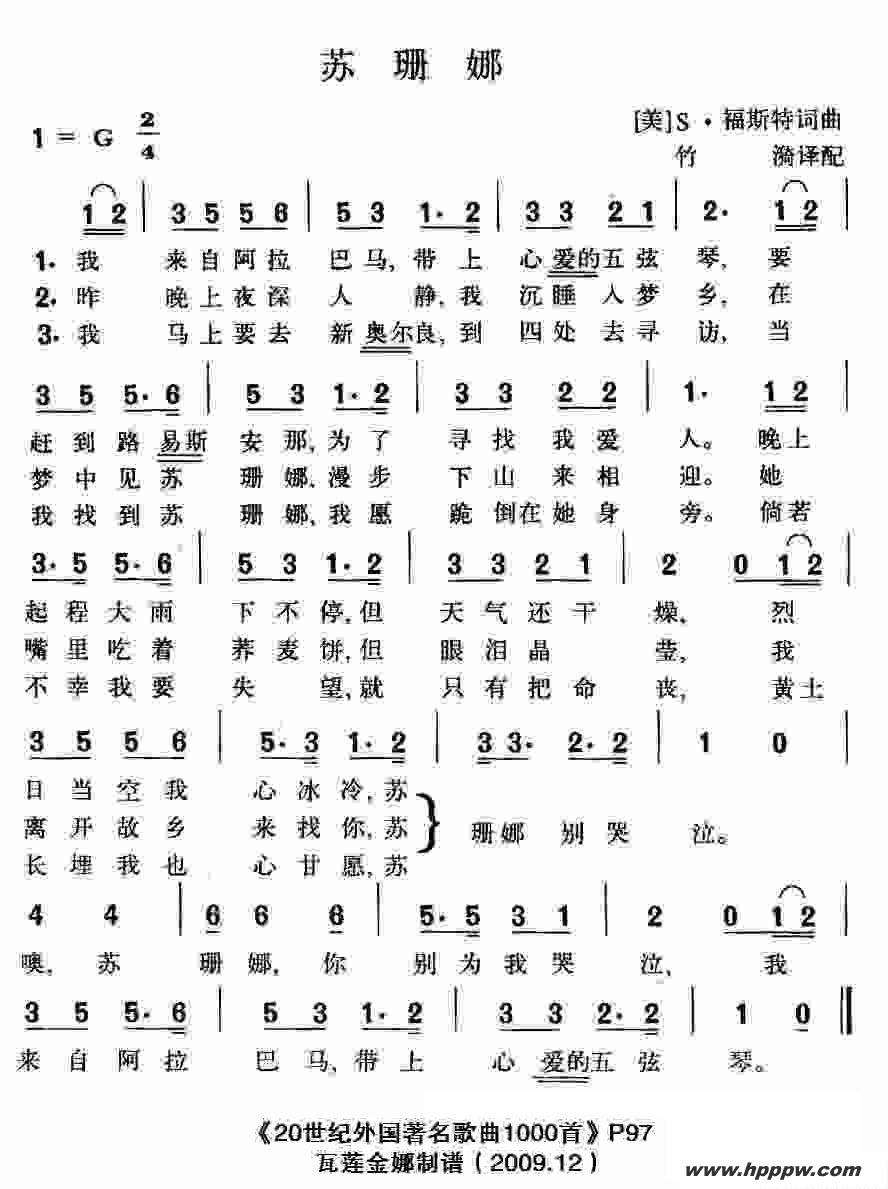 苏珊娜
1 = G 2/4
[美]S·福斯特词曲
竹漪译配
1 2 | 3 5 5 6 | 5 3 1· 2 | 3 3 2 1 | 2· 1 2 |
1. 我 来自阿拉 巴马,带上 心爱的五弦 琴,要
2. 昨 晚上夜深 人静,我 沉睡入梦 乡,在
3. 我 马上要去 新奥尔良,到 四处去寻 访,当
3 5 5· 6 | 5 3 1· 2 | 3 3 2 2 | 1· 1 2 |
赶到路易斯 安那,为了 寻找我爱 人。晚上
梦中见苏 珊娜,漫步 下山来相 迎。她
我找到苏 珊娜,我愿 跪倒在她身 旁。倘若
3· 5 5· 6 | 5 3 1· 2 | 3 3 2 1 | 2 0 1 2 |
起程大雨 下不停,但 天气还干 燥,烈
嘴里吃着 荞麦饼,但 眼泪晶 莹,我
不幸我要 失望,就 只有把命 丧,黄土
3 5 5 6 | 5· 3 1· 2 | 3 3· 2· 2 | 1 0 |
日当空我 心冰冷,苏
离开故乡 来找你,苏
长埋我也 心甘愿,苏
珊娜别哭 泣。
4 4 | 6 6 6 | 5· 5 3 1 | 2 0 1 2 |
噢,苏 珊娜,你 别为我哭 泣,我
3 5 5· 6 | 5 3 1· 2 | 3 3 2· 2 | 1 0 ‖
来自阿拉 巴马,带上 心爱的五弦 琴。
《20世纪外国著名歌曲1000首》P97
瓦莲金娜制谱(2009.12)
www.hpppw.com